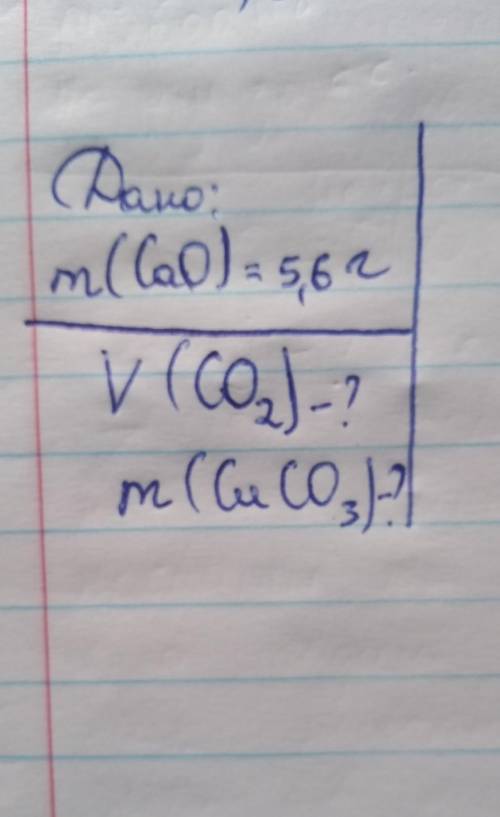 Дано:
m(CaO) = 5,6 г
V(CO₂) - ?
m(CaCO₃) - ?